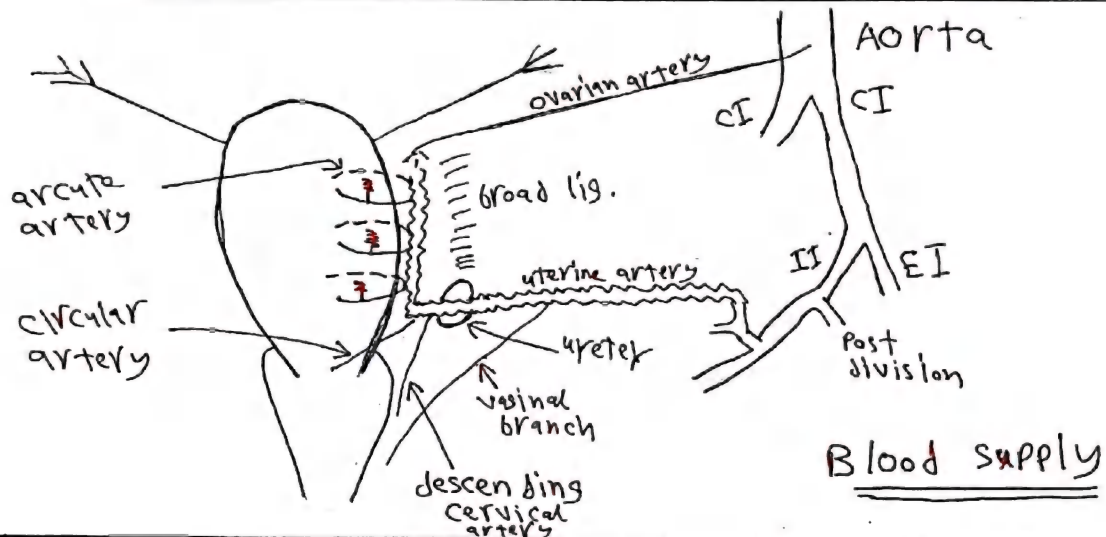 Aorta
ovarian artery
CI
CI
arcute
artery
broad lig.
II
EI
uterine artery
circular
artery
ureter
Post
division
vaginal
branch
Blood supply
descending
cervical
artery